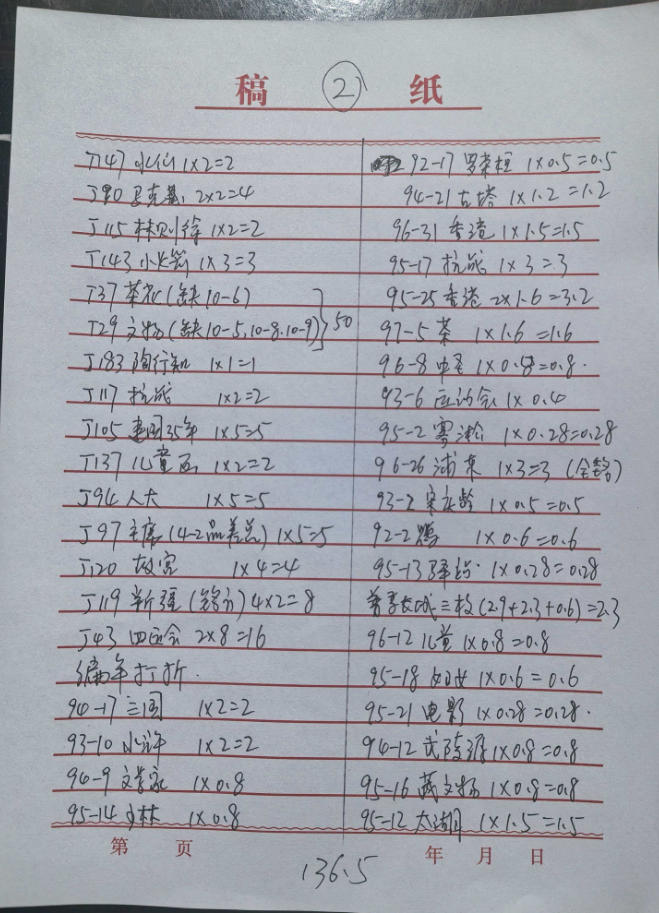 稿 ② 纸
T147 水仙 1×2=2
J90 马克思 2×2=4
J115 林则徐 1×2=2
T143 火箭 1×3=3
T37 茶花(缺10-6)
T29 文物(缺10-5,10-8,10-9)} 50
J183 陶行知 1×1=1
J117 抗战 1×2=2
J105 建国35年 1×5=5
T137 儿童画 1×2=2
J94 人大 1×5=5
J97 主席(4-2品差总) 1×5=5
T120 故宫 1×4=4
J119 新疆(铭方) 4×2=8
J43 四运会 2×8=16
编年打折.
94-17 三国 1×2=2
93-10 水浒 1×2=2
94-9 文学家 1×0.8
95-14 少林 1×0.8
92-17 罗荣桓 1×0.5=0.5
94-21 古塔 1×1.2=1.2
96-31 香港 1×1.5=1.5
95-17 抗战 1×3=3
95-25 香港 2×1.6=3.2
97-5 茶 1×1.6=1.6
96-8 中圣 1×0.8=0.8.
93-6 运动会 1×0.4
95-2 雾凇 1×0.28=0.28
96-26 浦东 1×3=3 (全铭)
93-2 宋庆龄 1×0.5=0.5
92-2 鹳 1×0.6=0.6
95-13 驿站. 1×0.28=0.28
普票长城三枚(2.9+2.3+0.6)=2.3
96-12 儿童 1×0.8=0.8
95-18 妇女 1×0.6=0.6
95-21 电影 1×0.28=0.28.
94-12 武陵源 1×0.8=0.8
95-16 藏文物 1×0.8=0.8
95-12 太湖 1×1.5=1.5
第 页
年 月 日
136.5